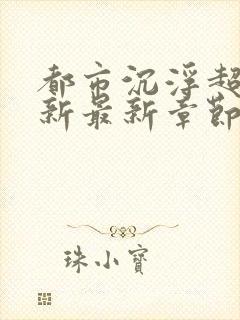 都市沉浮超
新最新章節
珠小寶